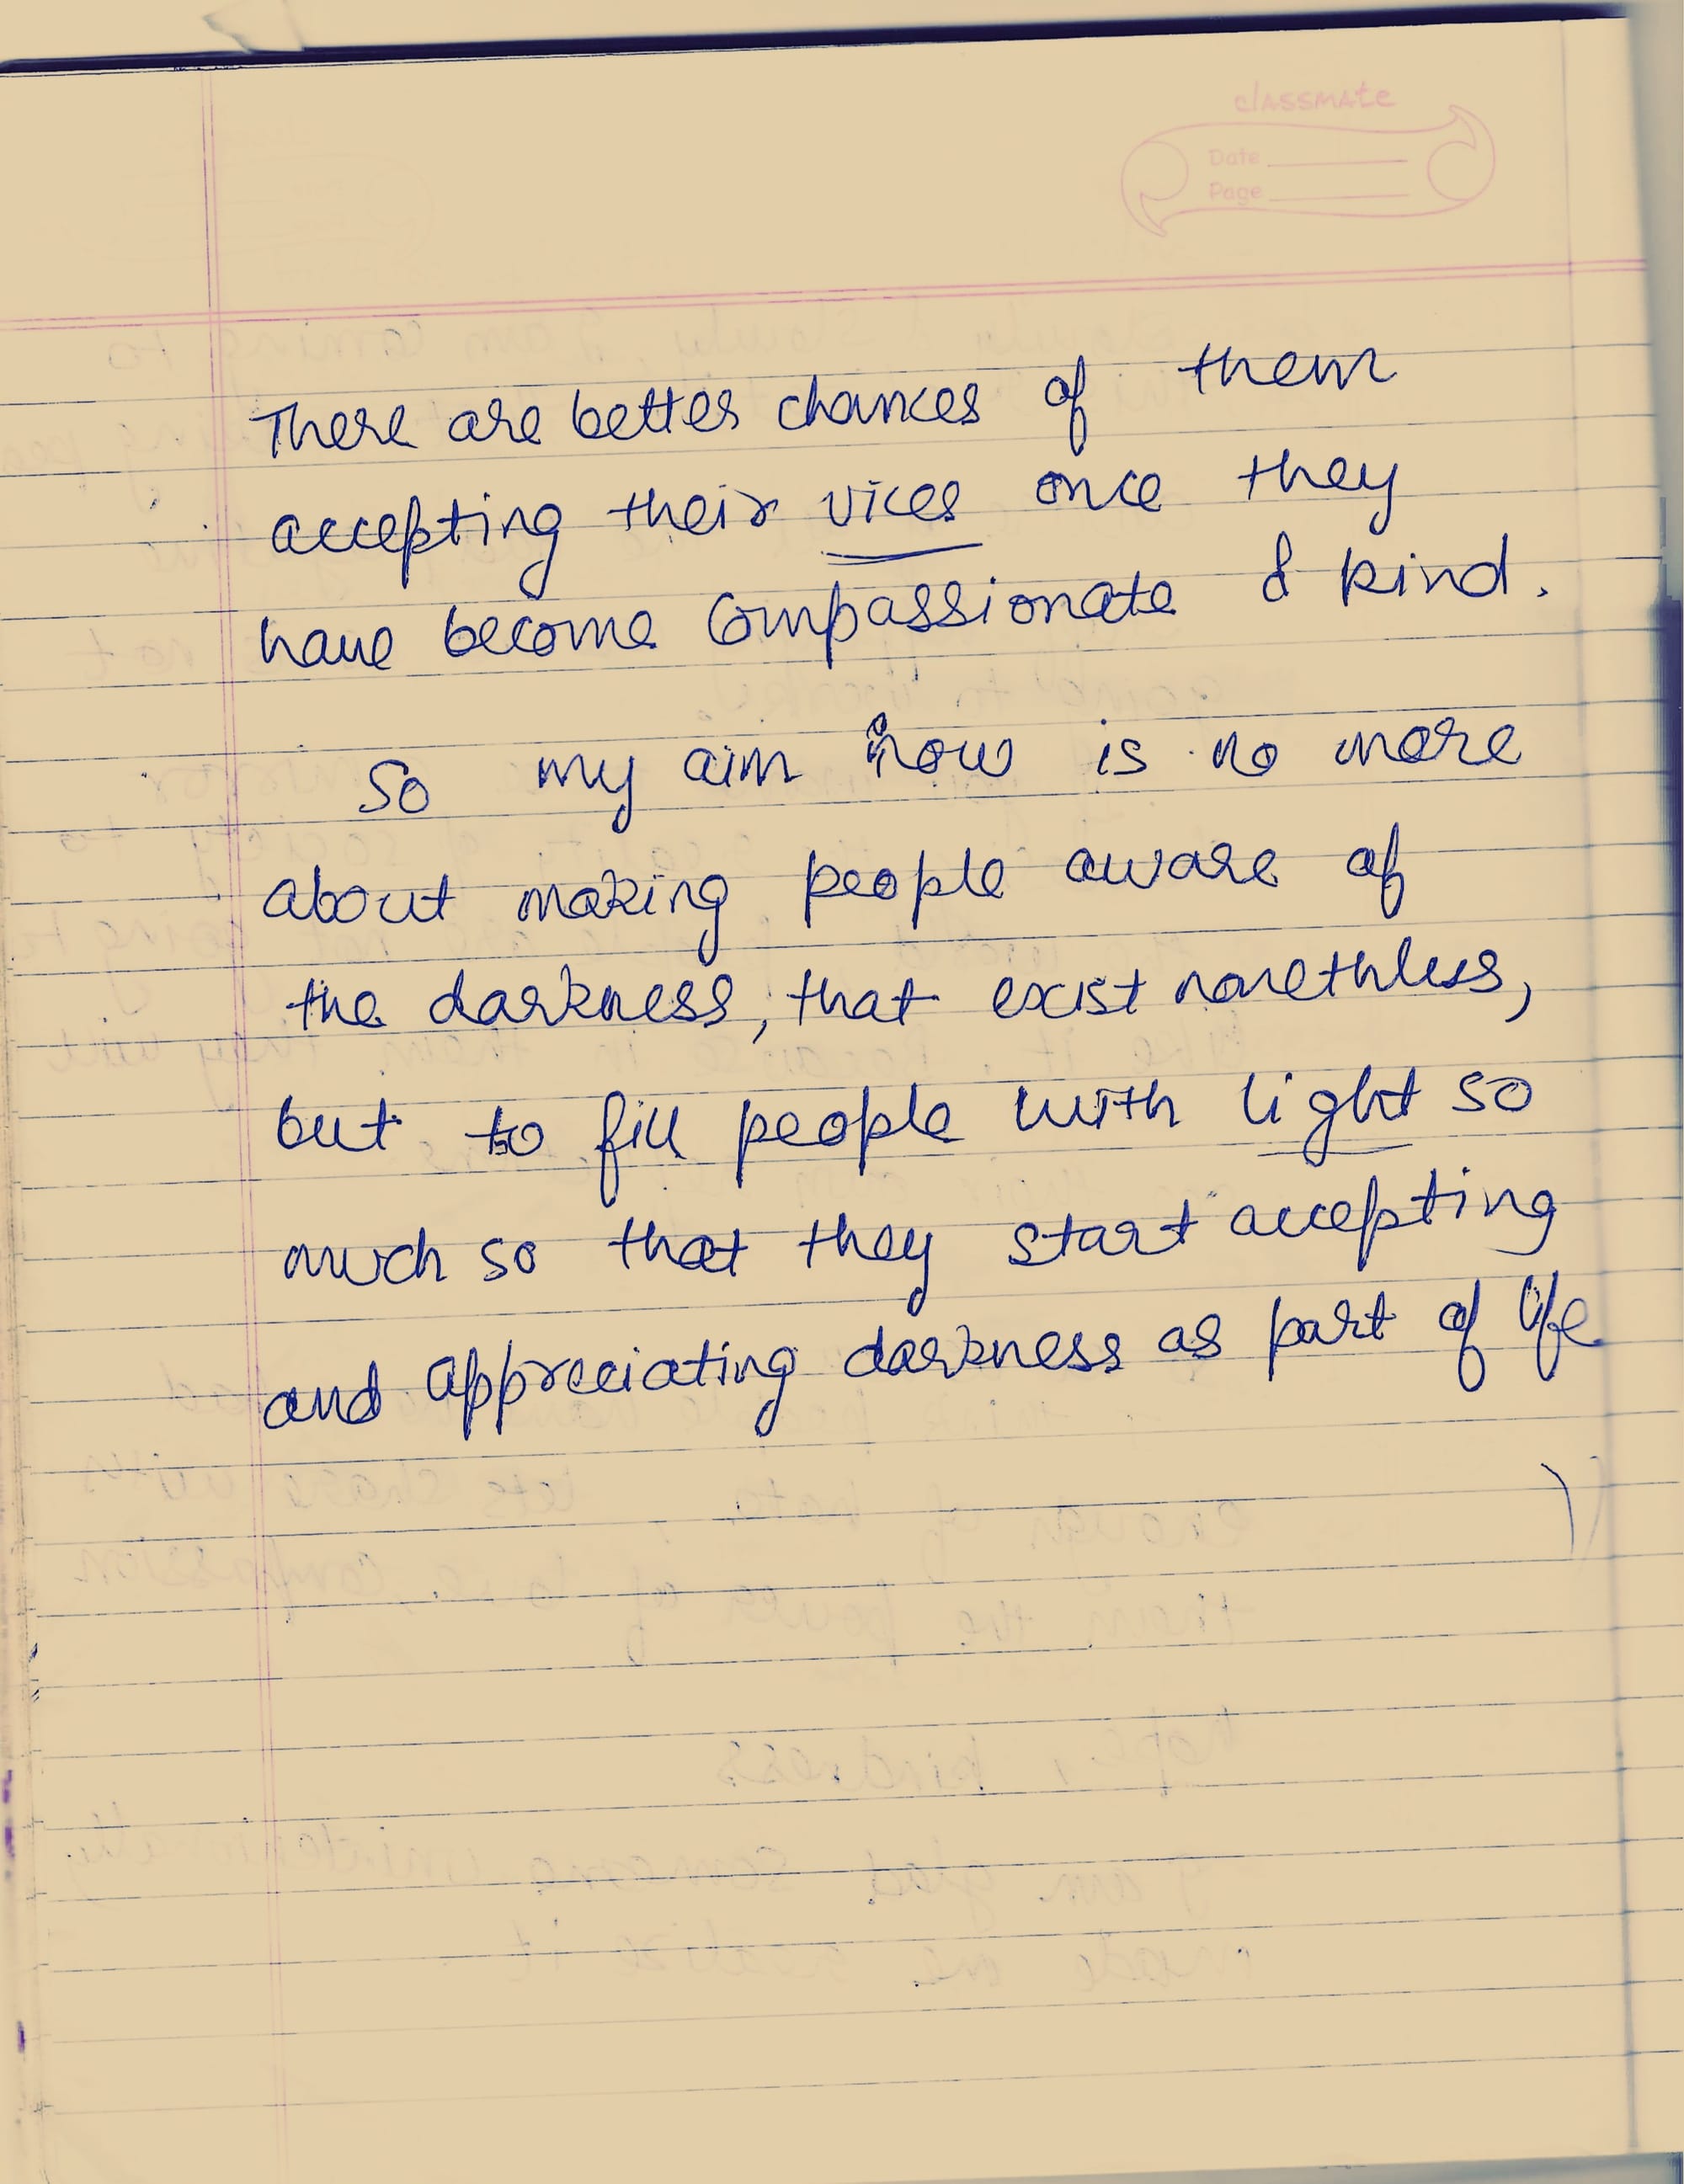 classmate
Date
Page
There are better chances of them
accepting their vices once they
have become compassionate & kind.
So my aim now is no more
about making people aware of
the darkness, that exist nonethless,
but to fill people with light so
much so that they start accepting
and appreciating darkness as part of life